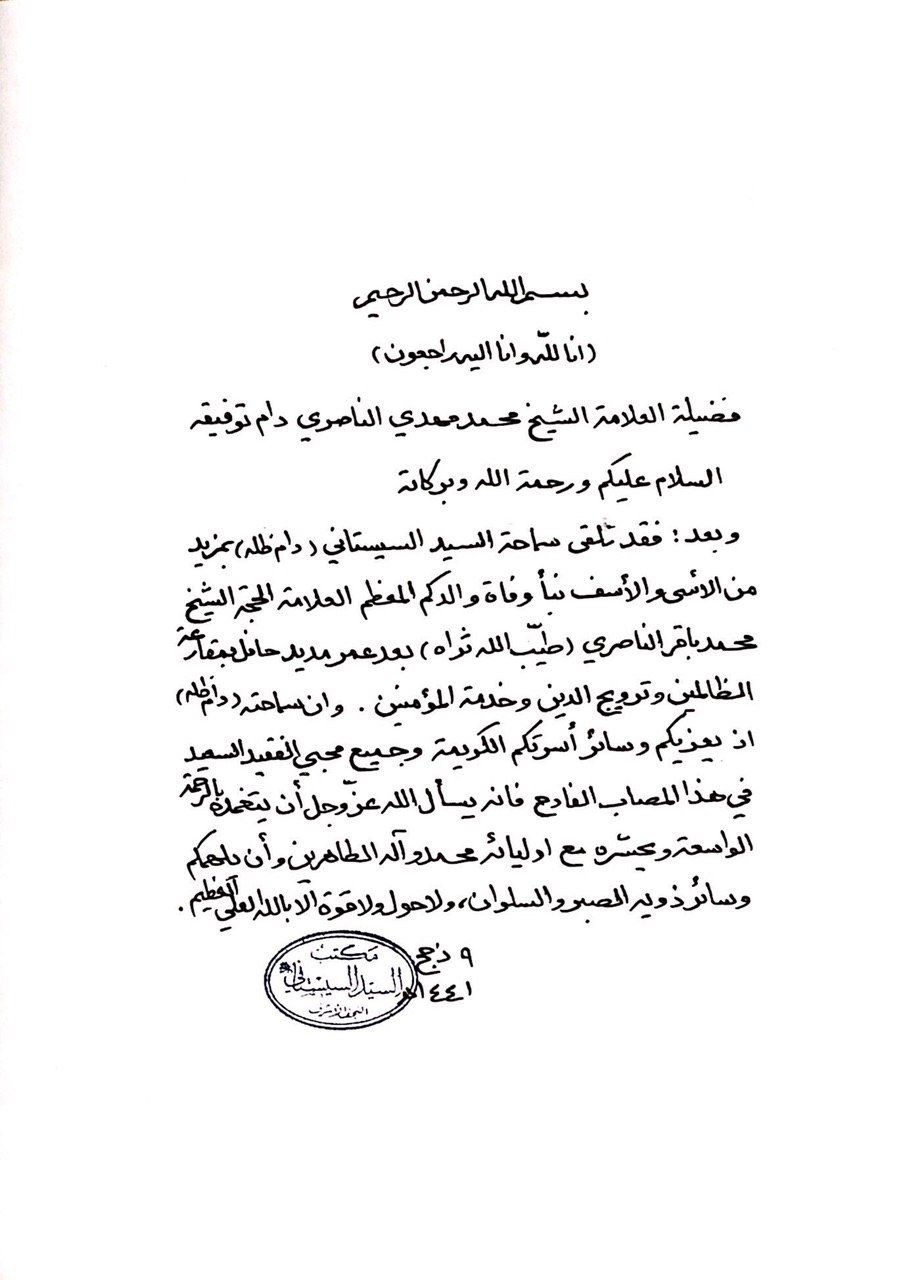 بسم الله الرحمن الرحيم
(انا لله وانا اليه راجعون)
فضيلة العلامة الشيخ محمد مهدي الناصري دام توفيقه
السلام عليكم ورحمة الله وبركاته
وبعد : فقد تلقى سماحة السيد السيستاني (دام ظله) بمزيد
من الأسى والأسف نبأ وفاة والدكم المعظم العلامة الحجة الشيخ
محمد باقر الناصري (طيّب الله ثراه) بعد عمر مديد حافل بمقارعة
الظالمين وترويج الدين وخدمة المؤمنين . وان سماحته (دام ظله)
اذ يعزيكم وسائر أسرتكم الكريمة وجميع محبي الفقيد السعيد
في هذا المصاب الفادح فانه يسأل الله عزّ وجل أن يتغمده بالرحمة
الواسعة ويحشره مع اوليائه محمد وآله الطاهرين وأن يلهمكم
وسائر ذويه الصبر والسلوان، ولا حول ولا قوة الا بالله العلي العظيم .
٩ ذ حج
١٤٤١هـ
مكتب
السيد السيستاني
النجف الاشرف